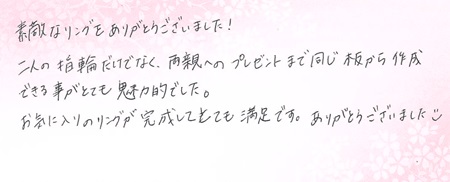 素敵なリングをありがとうございました!
二人の指輪だけでなく、両親へのプレゼントまで同じ板から作成
できる事がとても魅力的でした。
お気に入りのリングが完成してとても満足です。ありがとうございました